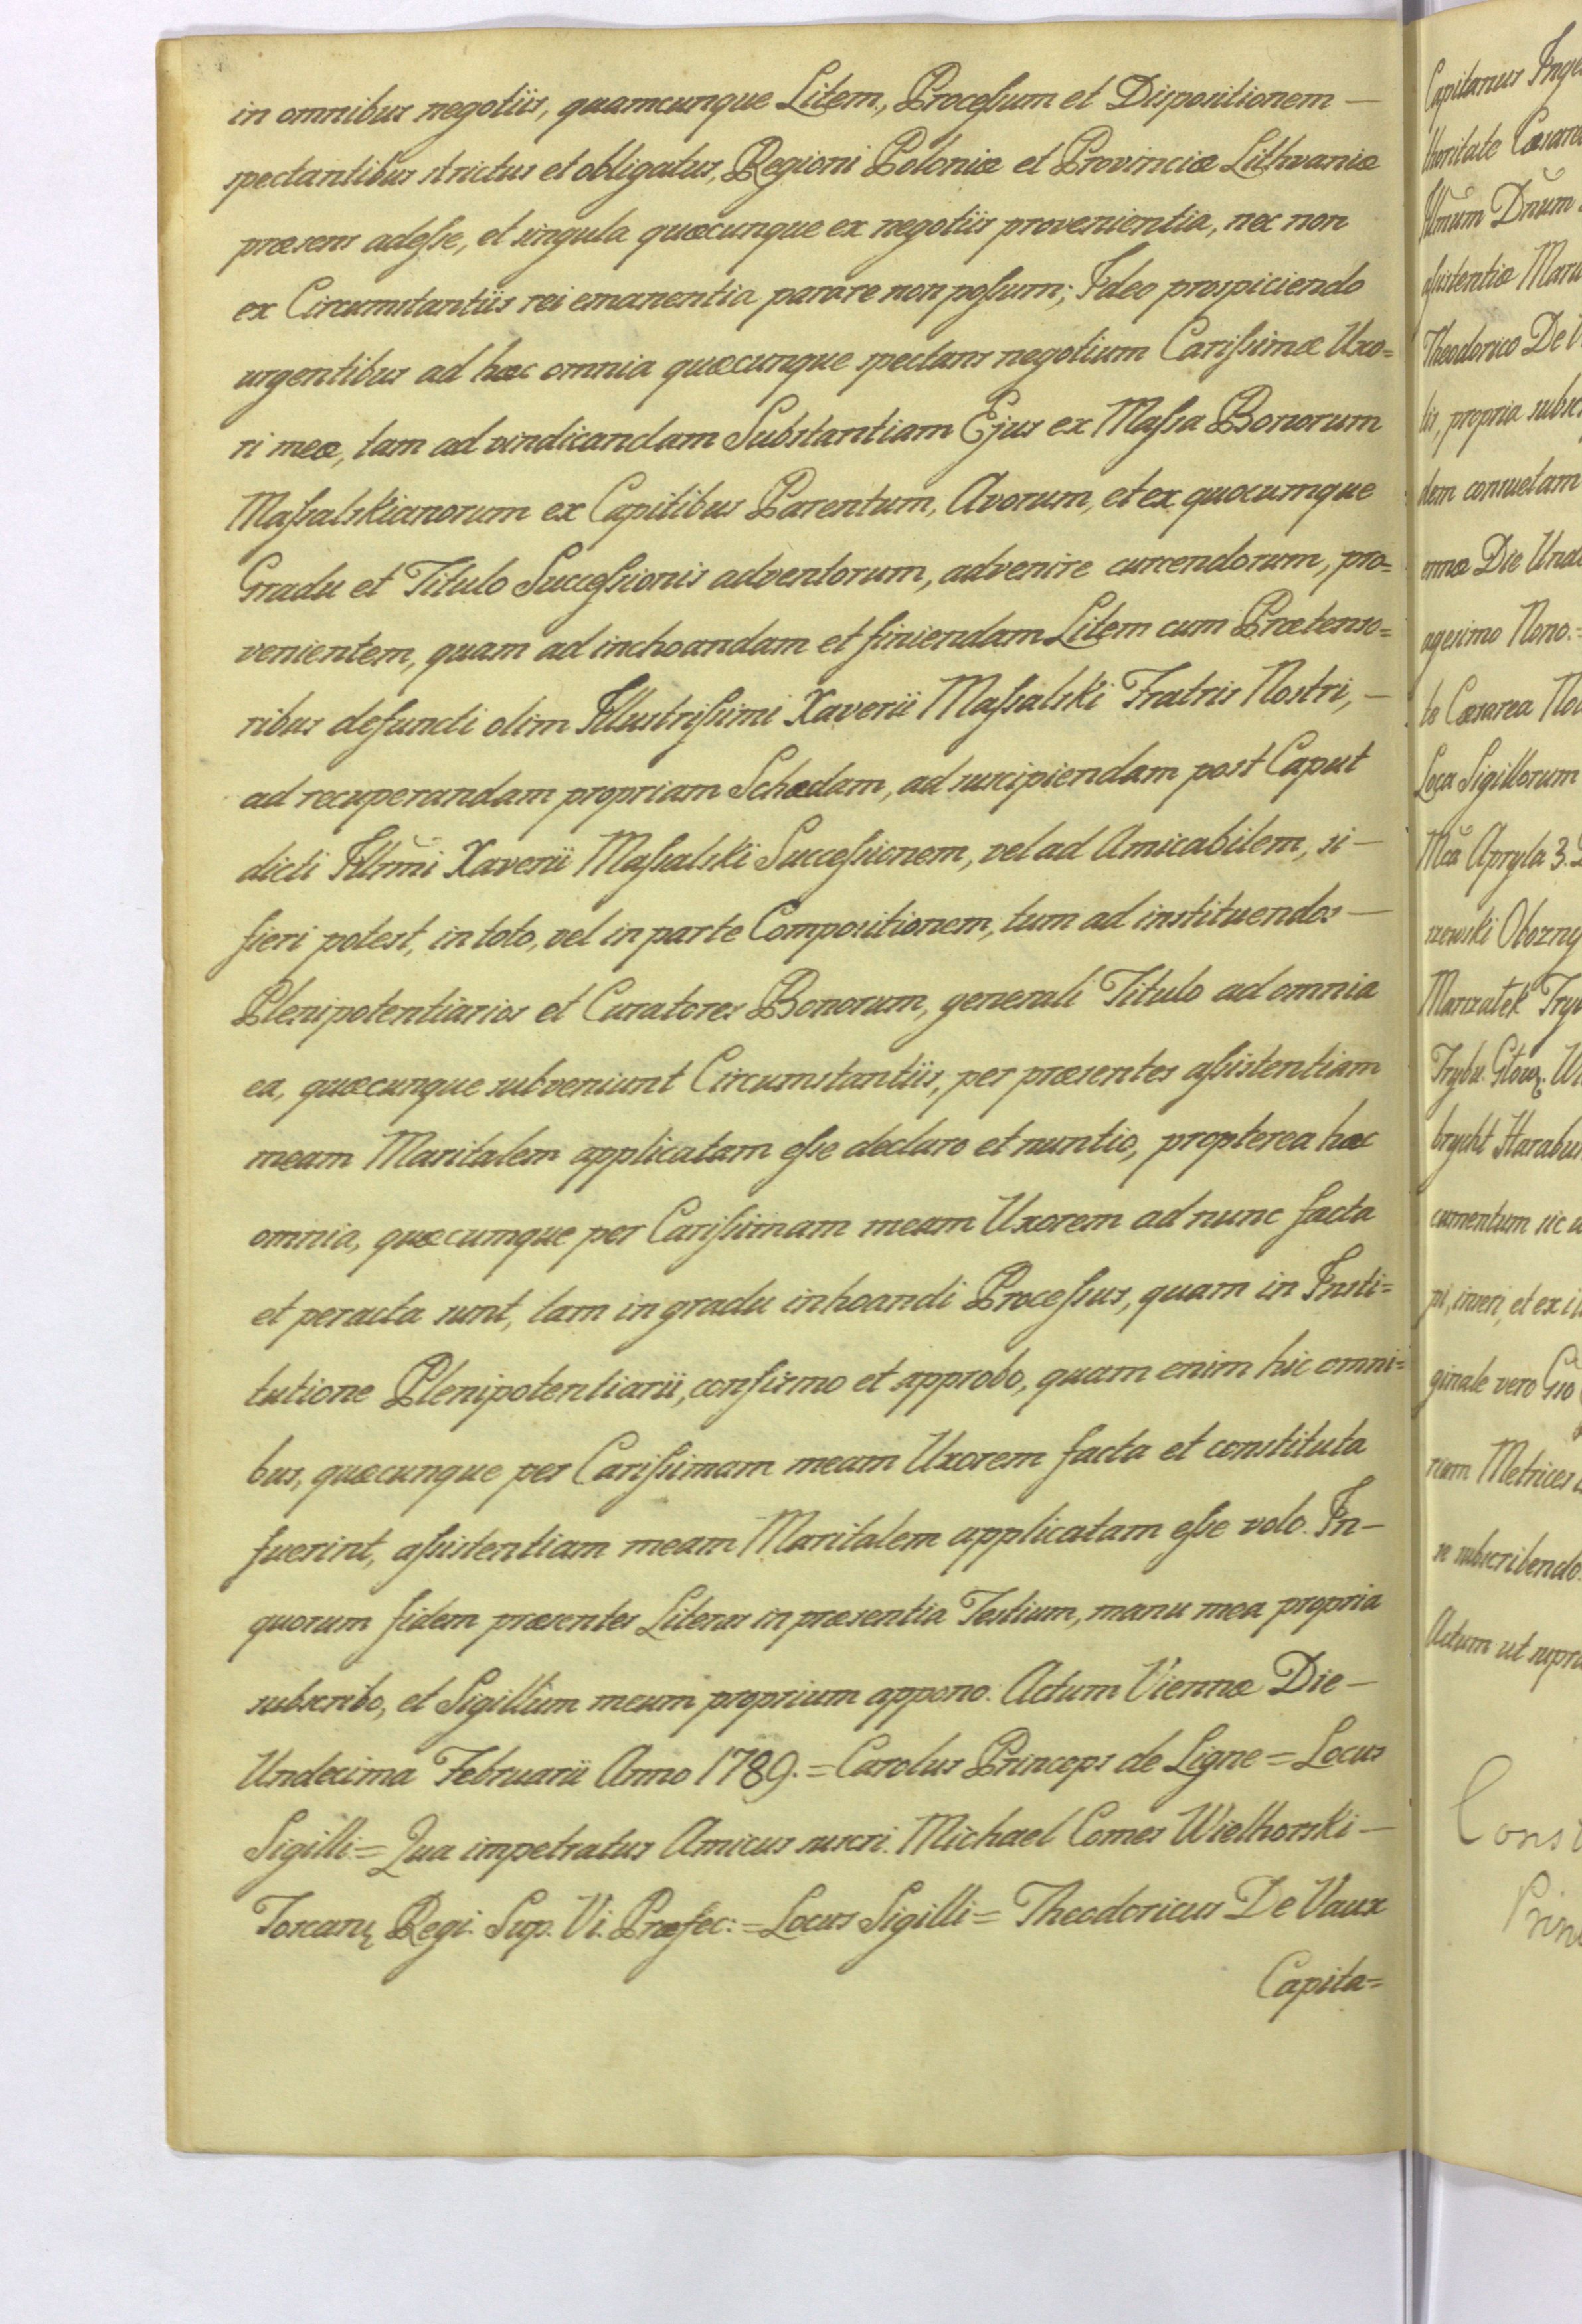 in omnibus negotiis, quamcunque Litem, Processum et Dispositionem —
spectantibus strictus et obligatus, Regioni Poloniæ et Provinciæ Lithvaniæ
præsens adesse, et singula quæcunque ex negotiis provenientia, nec non
ex Circumstantiis rei emanentia parare non possum; Ideo prospiciendo
urgentibus ad hæc omnia quæcunque spectans negotium Carissimæ Uxo=
ri meæ, tam ad vindicandam Substantiam Ejus ex Massa Bonorum
Massalskianorum ex Capitibus Parentum, Avorum, et ex quocumque
Gradu et Titulo Successionis adventorum, advenire currendorum, pro=
venientem, quam ad inchoandam et finiendam Litem cum Prætenso=
ribus defuncti olim Illustrissimi Xaverii Massalski Fratris Nostri, —
ad recuperandam propriam Schedam, ad suscipiendam post Caput
dicti Illrmi Xaverii Massalskii Successionem, vel ad Amicabilem, si —
fieri potest, in toto, vel in parte Compositionem, tum ad instituendos —
Plenipotentiarios et Curatores Bonorum, generali Titulo ad omnia
ea, quæcunque subveniunt Circumstantiis, per præsentes assistentiam
meam Maritalem applicatam esse declaro et nuntio, propterea hæc
omnia, quæcumque per Carissimam meam Uxorem ad nunc facta
et peracta sunt, tam in gradu inhoandi Processus, quam in Insti=
tutione Plenipotentiarii, confirmo et approbo, quam enim hic omni=
bus, quæcunque per Carissimam meam Uxorem facta et constituta
fuerint, assistentiam meam Maritalem applicatam esse volo. In —
quorum fidem præsentes Literas in præsentia Testium, manu mea propria
subscribo, et Sigillum meum proprium appono. Actum Viennæ Die —
Undecima Februarii Anno 1789. = Carolus Princeps de Ligne = Locus
Sigilli = Qua impetratus Amicus suscri. Michael Comes Wielhorski —
Toscani Regi. Sup. Vi. Præfec: = Locus Sigilli = Theodoricus De Vaux
Capita=
Capitanus Inge
thoritate Cæsare
Illmum Dnum
assistentiæ Mari
Theodorico De V
lis, propria subsc
dem consuetam
ennæ Die Unde
agesimo Nono. =
te Cæsarea No
Loca Sigillorum
Mca Apryla 3.
szewski Obozny
Marszałek Tryb
Trybu. Głow.
brycht Harabur
cumentum sic
pi, inseri, et ex
ginale vero
rum Metrices
se subscribendo
Actum ut supra
Const
Prin